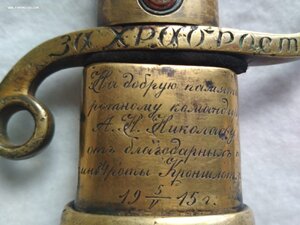 ЗА ХРАБРОСТ
На добрую память
ротному командиру
А. Н. Николаеву
отъ благодарныхъ
Кронштотъ
19 5/V 15 г.